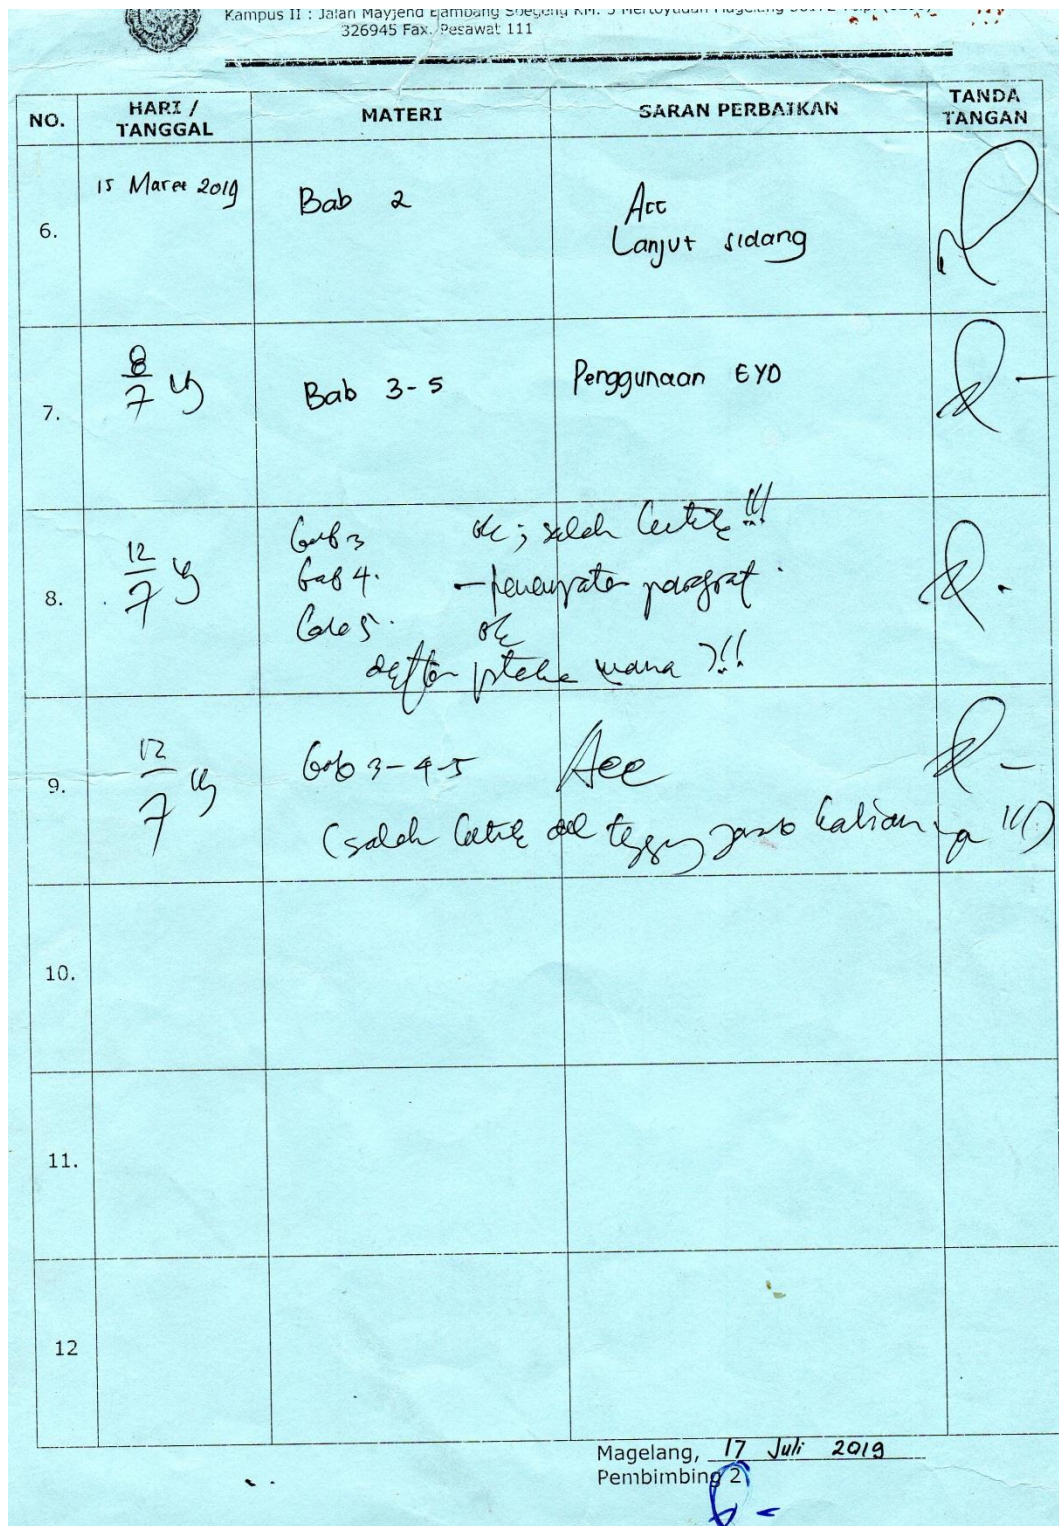 Kampus II : Jalan Mayjend Bambang Soegeng KM. 5 Mertoyudan Magelang
326945 Fax. Pesawat 111
NO. HARI / TANGGAL MATERI SARAN PERBAIKAN TANDA TANGAN
6. 15 Maret 2019 Bab 2 Acc
Lanjut sidang
7. 8/7 19 Bab 3-5 Penggunaan EYD
8. 12/7 19 Bab 3 ok ; salah ketik !!!
Bab 4. - paragraf.
Bab 5. ok
daftar mana ?!!
9. 12/7 19 Bab 3-4-5 Acc
(salah ketik !!!)
10.
11.
12
Magelang, 17 Juli 2019
Pembimbing 2